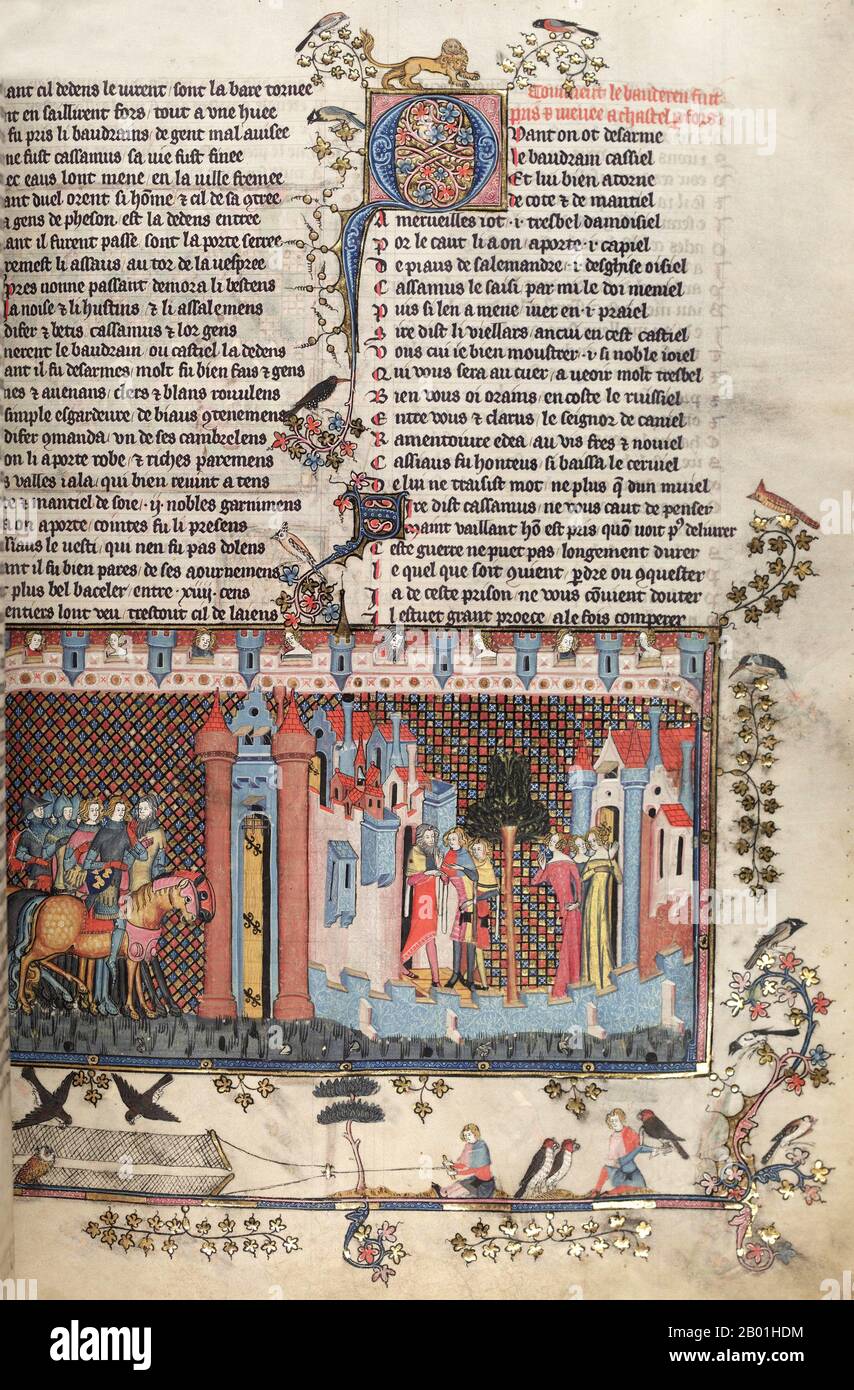 ant cil dedens le virent / sont la bare tornee
nt en saillirent fors / tout a vne huee
fu pris li baudrains / de gent mal auisee
ne fust cassamus / sa vie fust finee
ec eaus lont mene / en la ville fremee
ant duel orent si hôme & cil de sa 9tree
a gens de pheson / est la dedens entree
ant il furent passe / sont la porte serree
remest li assaus / au tor de la vespree
pres nonne passant / demora li bestens
la noise & li hustins / & li assalemens
difer & betis / cassamus & lor gens
nerent le baudrain / ou castiel la dedens
ant il fu desarmes / molt fu bien fais & gens
nes & auenans / clers & blans rouulens
simple esgardeure / de biaus 9tenemens
difer 9manda / vn de ses cambrelens
on li aporte robe / & riches paremens
s valles i ala / qui bien reuint a tens
te & mantiel de soie / ·ij· nobles garnimens
a on aporte / comtes fu li presens
le vesti / qui nen fu pas dolens
ant il fu bien pares / de ses aournemens
t plus bel baceler / entre ·xiiij· cens
entiers lont veu / trestout cil de laiens
Comment le bauderen fu
pris & menee a chastel p fors
Qvant on ot desarme
le baudrain cassiel
Et lui bien atorne
de cote & de mantiel
A merueilles i ot ·i· tresbel damoisiel
Por le caut li a on / aporte ·i· capiel
De piaus de salemandre / ·i· desghise oisiel
Cassamus le saisi / par mi le doi meniel
Puis si len a mene / iuer en ·i· praiel
Sire dist li viellars / ancui en cest castiel
Vous cui ie bien moustrer ·i· si noble ioiel
Qui vous sera au cuer / a veoir molt tresbel
Bien vous oi orains / en coste le ruissiel
Entre vous & clarus / le seignor de caniel
Ramentoiure edea / au vis fres & nouiel
Cassiaus fu honteus / si baissa le ceruiel
De lui ne traisist mot / ne plus q̃ dun muiel
Sire dist cassamus / ne vous caut de penser
Maint vaillant hõ est pris / quõ voit p9 dehurer
Ceste guerre ne puet pas / longement durer
Le quel que soit 9uient / perdre ou 9quester
Ia de ceste prison / ne vous cõuient douter
Il estuet grant proece / a le fois comperer
alamy
Image ID: 2B01HDM
www.alamy.com